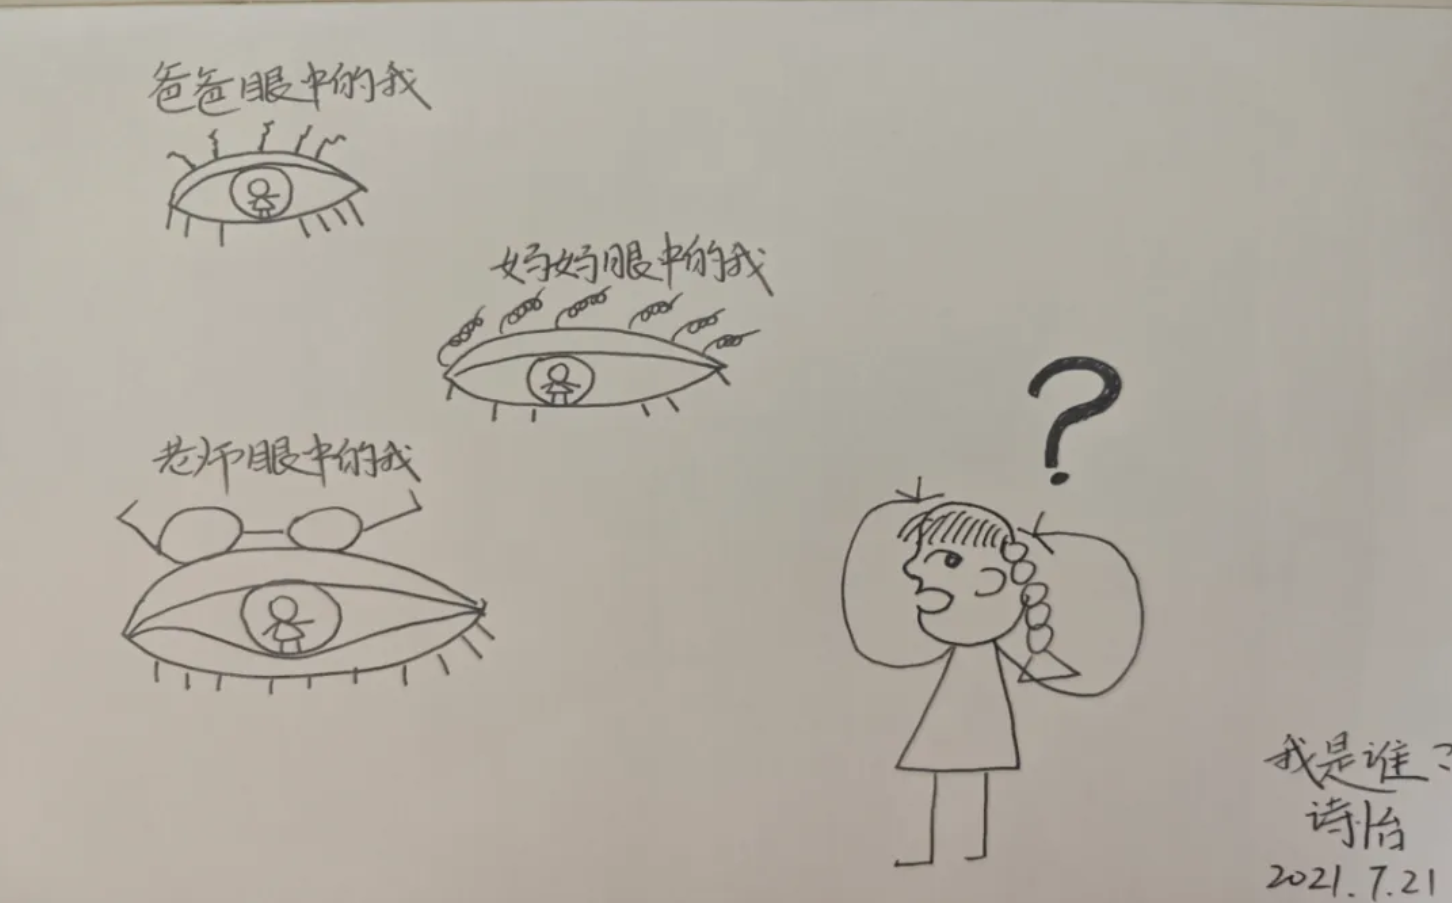 爸爸眼中的我
妈妈眼中的我
老师眼中的我
?
我是谁?
诗怡
2021.7.21